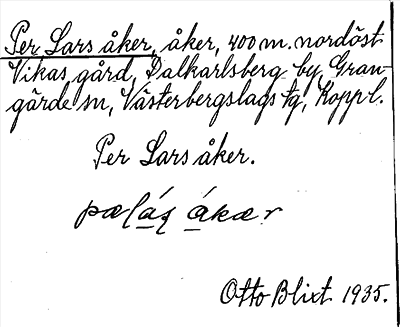 Per Lars åker, åker, 400 m. nordöst
Vikas gård, Dalkarlsberg by, Gran-
gärde sn, Västerbergslags tg, Koppl.
Per Lars åker.
Otto Blixt 1935.